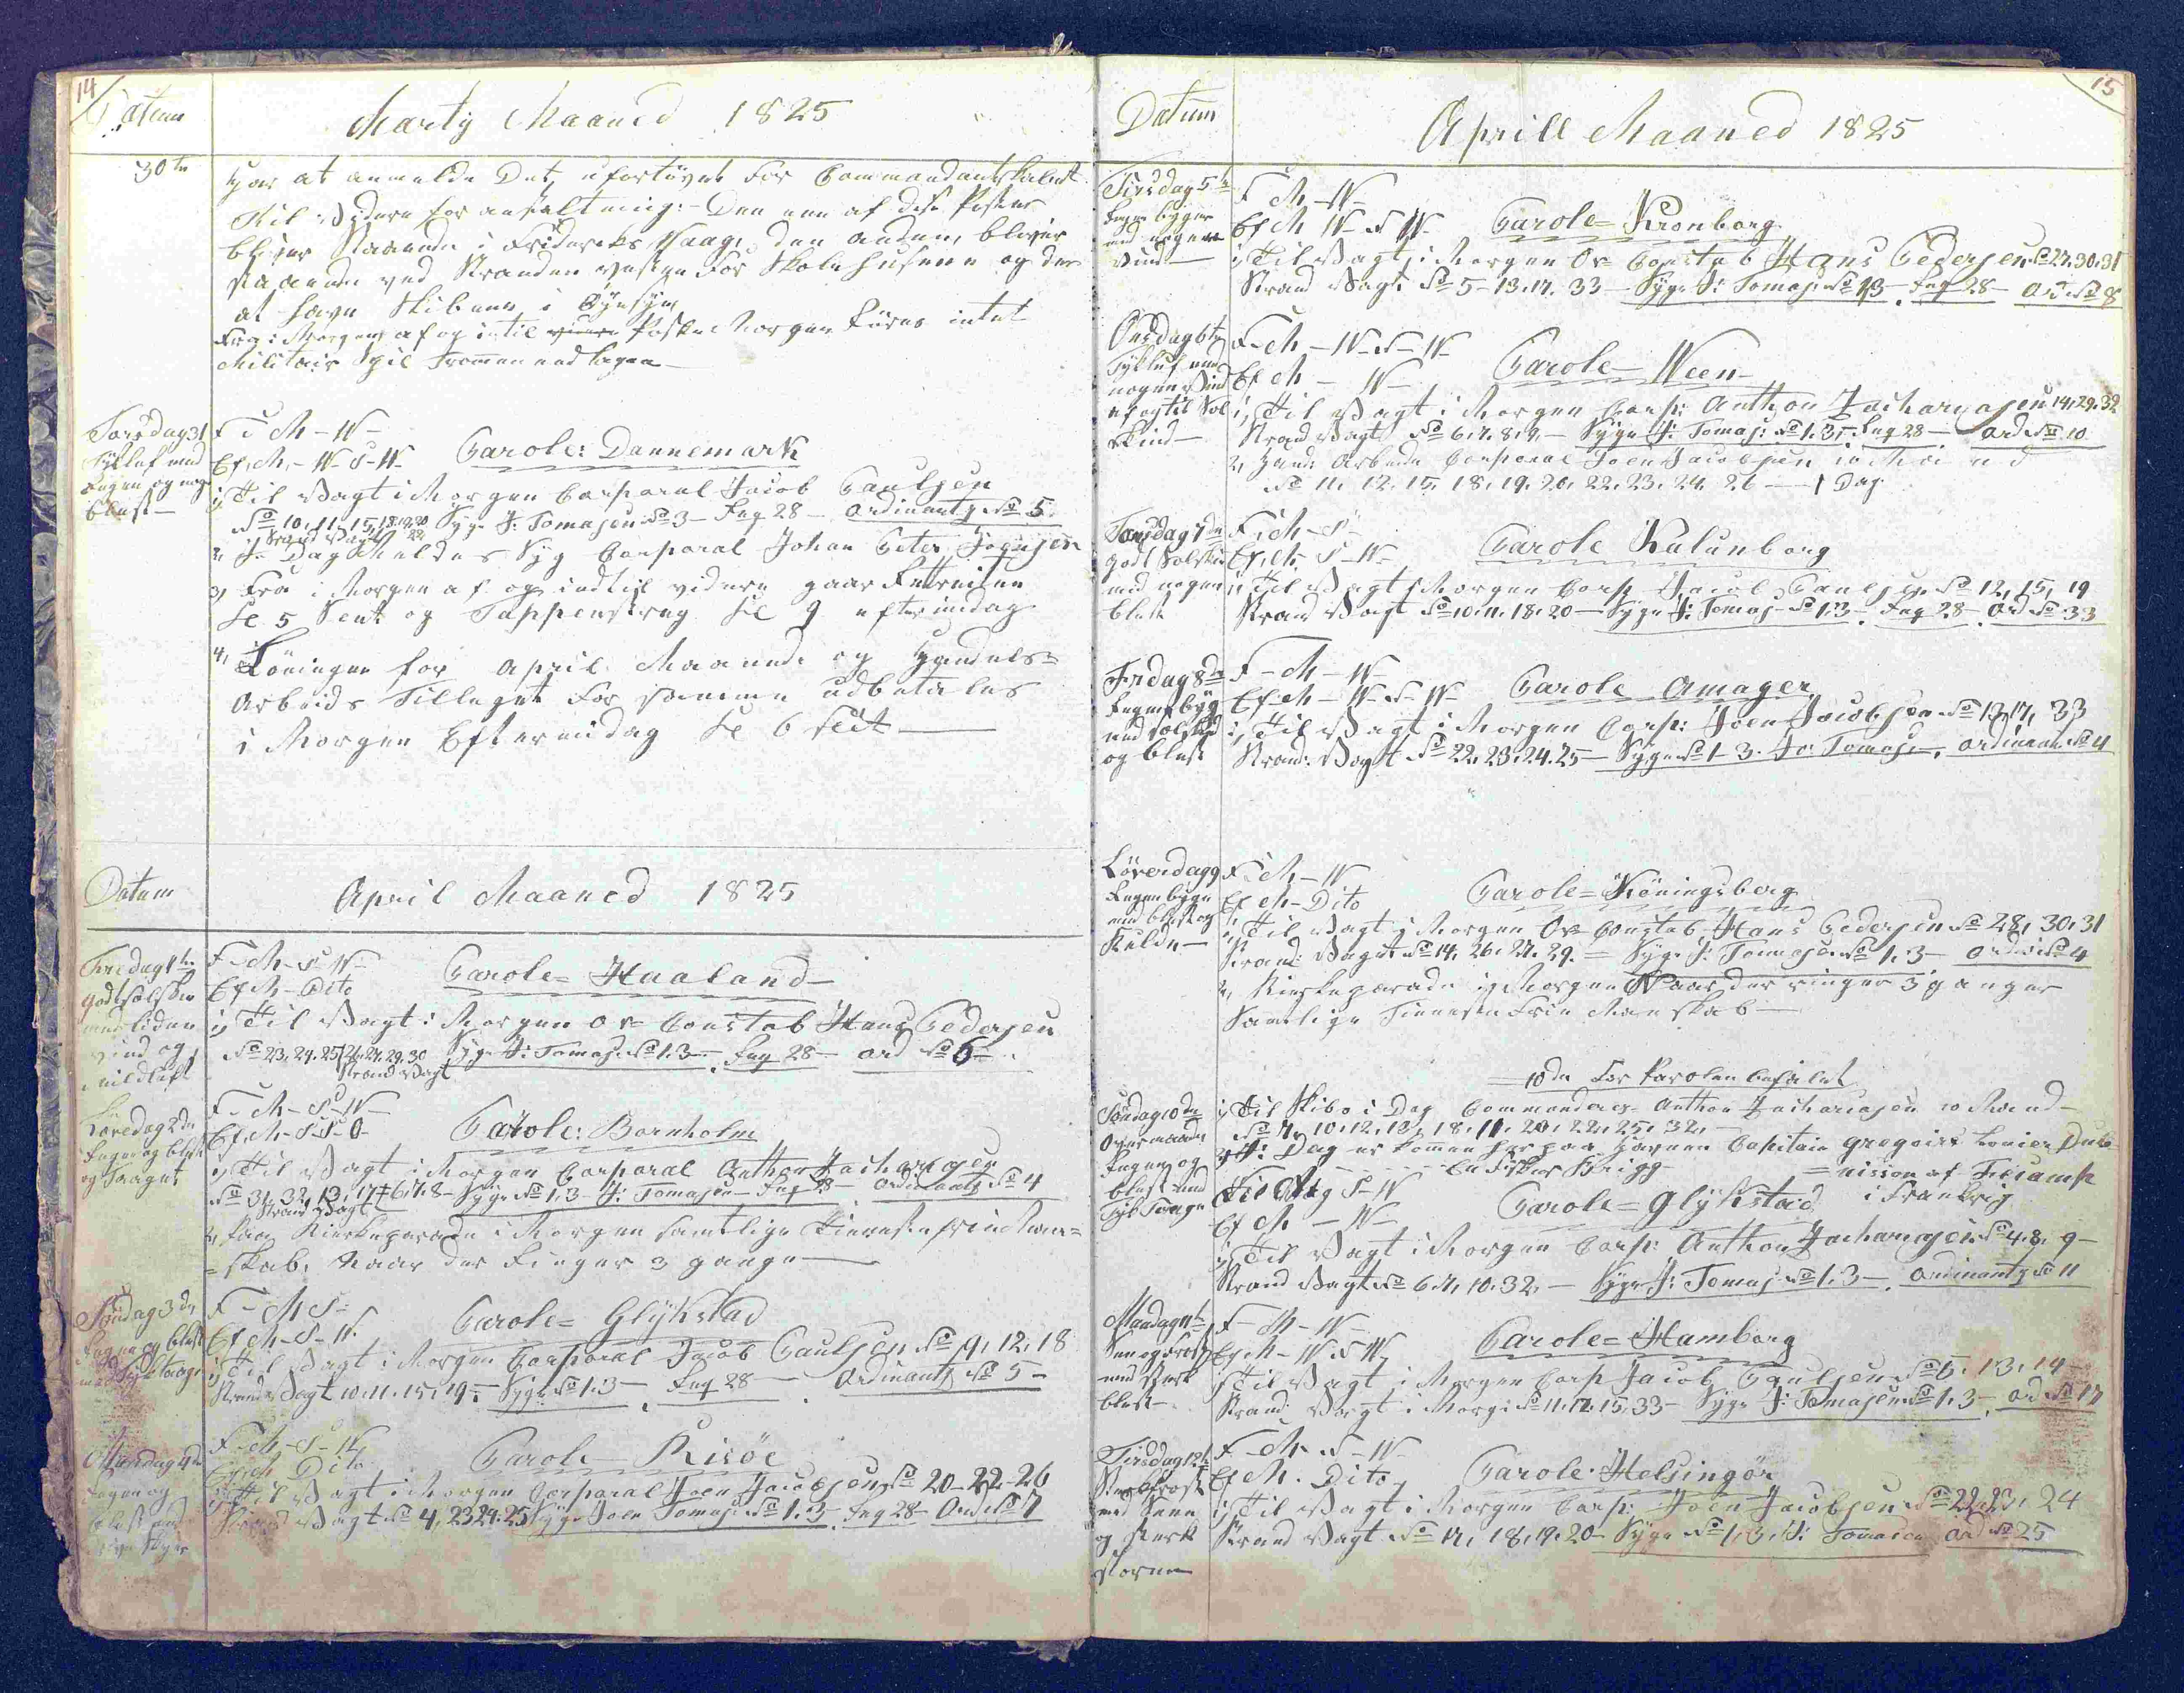 14
Datum
Marty Maaned 1825
30te
har at anmelde Det ufortövet for Commandantskabet
til videre foranstaltning:- Den ene af disse Poster
bliver staaende i Friderichs Vaag, den anden, bliver
staaende ved Stranden vesten for Skole husene og der
at have Skibene i Öynsyn
Fra i Morgen af og intil Morgen Röres intet
Militair Spil Trommen
Torsdag 31
Tykluft med
Regen og
blæst
F M - W -
Ef. M. - W - S - W
Parole: Dannemark
1, Til Vagt i Morgen Corporal Jacob Paulsen
No 10, 11, 15, 18, 19, 20 Syge J: Tomasen No 3 - Faq 28 - Ordinantz No 5
Strand Vagt 22
2, I Dag Meldes Syg Corporal Johan Peter Joensen
3, Fra i Morgen af og indtil videre gaar Retraiten
Kl 5 Sent og Tappenstreg Kl 9 eftermidag
4, Löningen for April Maaned og Haandels=
Arbeids Tillæget for samme udbetales
i Morgen Eftermidag Kl 6 Slet
Datum
April Maaned 1825
Fredag 1te
godt solskin
med liden
vind og
mild luft
F - M - S - W -
Ef M - Dito
Parole = Haaland -
1, Til Vagt i Morgen Ov= Constab Hans Pedersen
No 23, 24, 25, 26, 27, 29, 30 Syge J: Tomas: No 1. 3 - Faq 28 - Ord No 6 -
Strand Vagt
Löverdag 2den
Regen og blæst
og Taaget
F - M - S - W -
Ef. M - S - S - O -
Parole: Bornholm
1, Til Vagt i Morgen Corporal Anthon Zachariasen
No 31, 32, 13, 17 + 6. 7. 8 - Syge No 1. 3 J: Tomasen - Faq 28 - Ordinantz No 4
Strand Vagt
2, Paa Kirkeparade i Morgen samtlige Tienestefrie Man=
=skab, Naar der Ringes 3 gange
Söndag 3den
Regen og blæst
med Tyk taage
F - M S -
Ef M - S - W.
Parole = Glÿkstad
1, Til Vagt i Morgen Corporal Jacob Paulsen No 9, 12, 18
Strand Vagt 10. 11. 15. 19 - Syge No 1. 3 - Faq 28 - Ordinantz No 5 -
Mandag 4de
Regen og
blæst
F - M - S - W
Ef M Dito
Parole - Risöe
1, Til Vagt i Morgen Corporal Joen Jacobsen No 20 - 22 - 26
Strand Vagt No 4, 23 24. 25 Syge Joen Tomas: No 1. 3 Faq 28 - Ord No 7
15
Datum
Aprill Maaned 1825
Tirsdag 5te
Regen byger
med nogen
vind
F M - W -
Ef M W - S W
Parole = Kronborg
1, Til Vagt i Morgen Ov= Constab Hans Pedersen No 27. 30. 31
Strand Vagt No 5 - 13. 17. 33 - Syge J: Tomas: No 1, 3 - Faq 28 - Ord No 8
Onsdag 6te
Tykluft med
nogen vind
af og til Sol
skind
F - M - W - S - W
Ef M - W -
Parole - Ween -
1, Til Vagt i Morgen Corp: Anthon Zachariasen 14, 29. 32
Strand Vagt No 6. 7. 8. 9. - Syge J: Tomas: No 1. 3. Faq 28 - Ord No 10
2, Haand: Arbeide Corporal Joen Jacobsen 10 Mand
No 11. 12. 15. 18. 19. 20. 22. 23. 24. 26 - 1 Dag
Torsdag 7de
godt Solskin
med nogen
blæst
F. M - S -
Ef. M. S - W -
Parole Kalunborg
1, Til Vagt i Morgen Corp Jacob Paulsen No 12, 15, 19
Strand Vagt No 10. 11. 18. 20 - Syge J: Tomas: No 1. 3 - Faq 28 - Ord No 33
Fredag 8de
Regen byg
med solskin
og blæst
F - M - W -
Ef. M - W - S - W -
Parole Amager
1, Til Vagt i Morgen Corp: Joen Jacobsen No 13. 17, 33
Strand: Vagt No 22, 23. 24. 25 - Syge No 1 - 3 - Jo: Tomasen, Ordinantz No 4
Löverdag 9
Regen byger
med blæst og
Kulde -
F. M - W
Ef M - Dito
Parole = Köningsberg
1, Til Vagt i Morgen Ov= Constab Hans Pedersen No 28, 30, 31
Strand: Vagt No 14, 26. 27. 29. = Syge J: Tomasen No 1, 3 - Ord: No 4
2, Kirkeparade i Morgen Naar der ringes 3 ganger
Samtlige Tieneste Frie Manskab
10de For Parolen befalet
Söndag 10de
Regen og
blæst med
Tyk Taage
1, Til Skibs i Dag Commanderes Anthon Zachariasen 10 Mand -
No 7, 10, 12, 13, 18, 19, 20, 22, 25, 32,
2, I Dag er kommen her paa Havnen Capitain gregoire Lonier
En Fisker Brigg = nission af Fecamp
i Frankrig
S - W
Ef M - W -
Parole = Glÿkstad
1, Til Vagt i Morgen Corp: Anthon Zachariasen No 4. 8. 9 -
Strand Vagt No 6. 7. 10. 32, - Syge J: Tomas: No 1. 3 -. Ordinantz No 11
Mandag 11te
Snee og Frost
med sterk
blæst -
F - M - W -
Ef M - W S W
Parole = Hamborg
1, Til Vagt i Morgen Corp Jacob Paulsen No 5. 13. 14 -
Strand: Vagt i Morg: No 11. 12. 15. 33 - Syge J: Tomasen No 1. 3 -. Ord No 17
Tirsdag 12te
Sterk frost
med Snee
og sterk
storm
F - M. S - W -
Ef M. Dito
Parole: Helsingör
1, Til Vagt i Morgen Corp: Joen Jacobsen No 22. 23. 24
Strand Vagt No 17, 18, 19. 20 - Syge No 1, 3, J: Tomasen Ord No 25